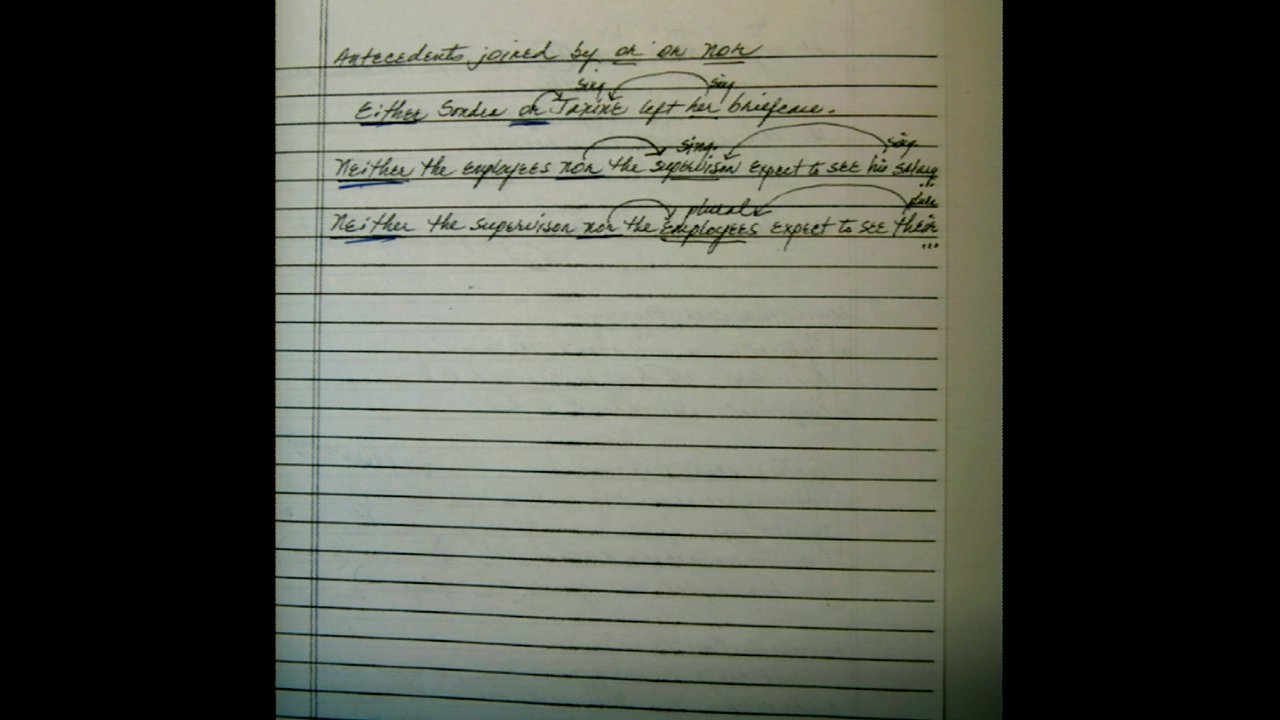 Antecedents joined by or or nor
sing sing
Either Sondra or Janine left her briefcase.
sing. sing.
Neither the employees nor the supervisor expect to see his salary
...
plural
Neither the supervisor nor the employees expect to see their
...